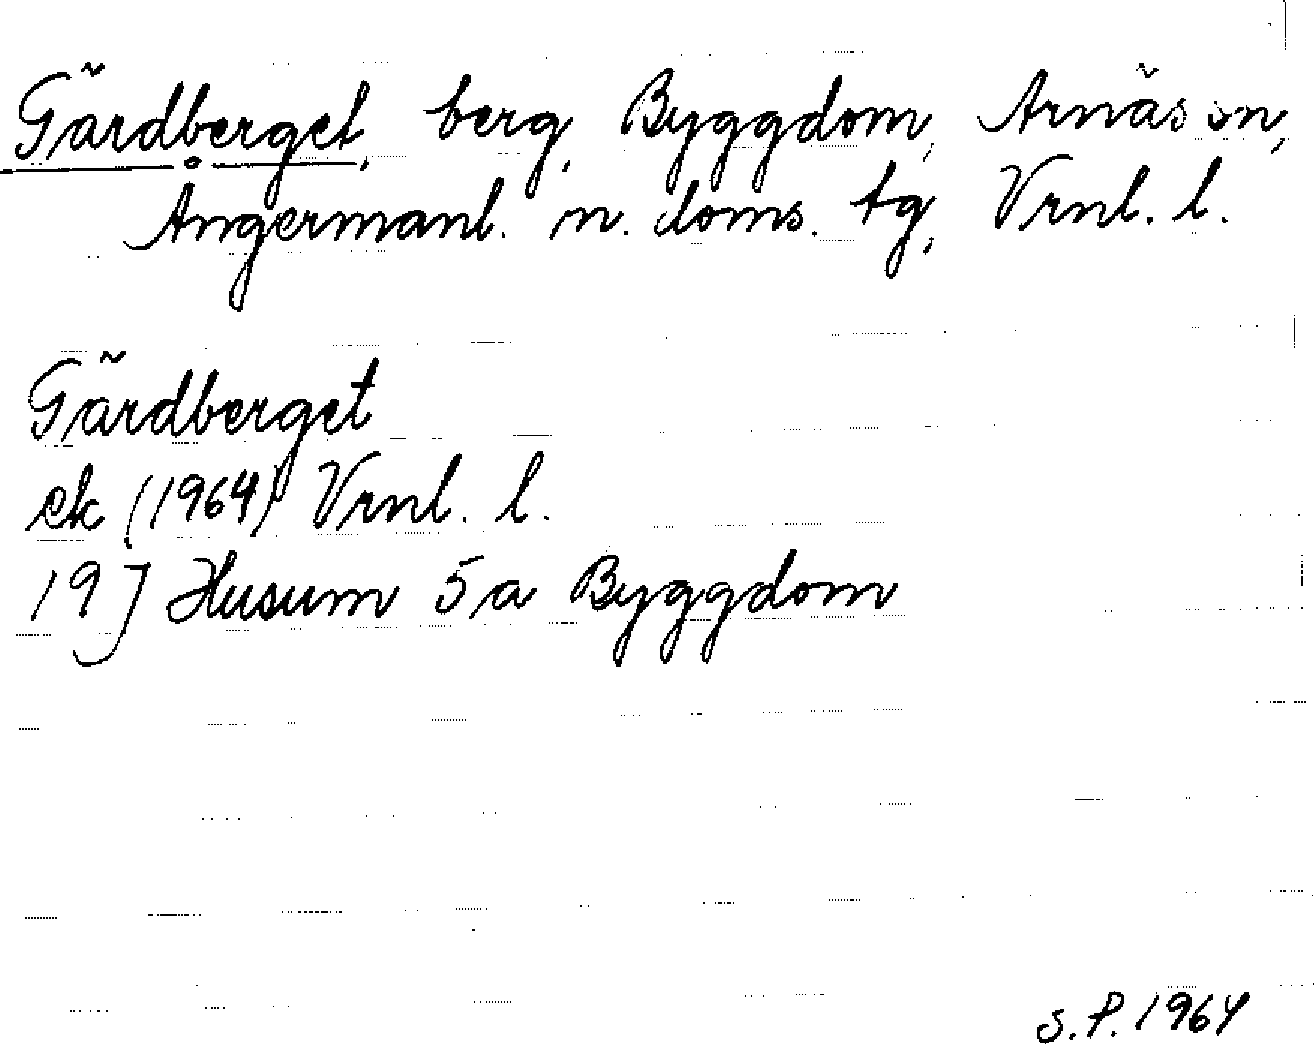 Gärdberget, berg, Byggdom, Arnäs sn,
Ångermanl. n. doms. tg, Vrnl. l.
Gärdberget
ek (1964) Vrnl. l.
19 J Husum 5 a Byggdom
S.P. 1964